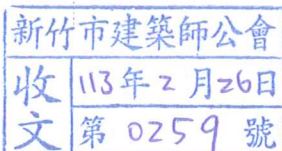 新竹市建築師公會
收文
113年2月26日
第 0259 號